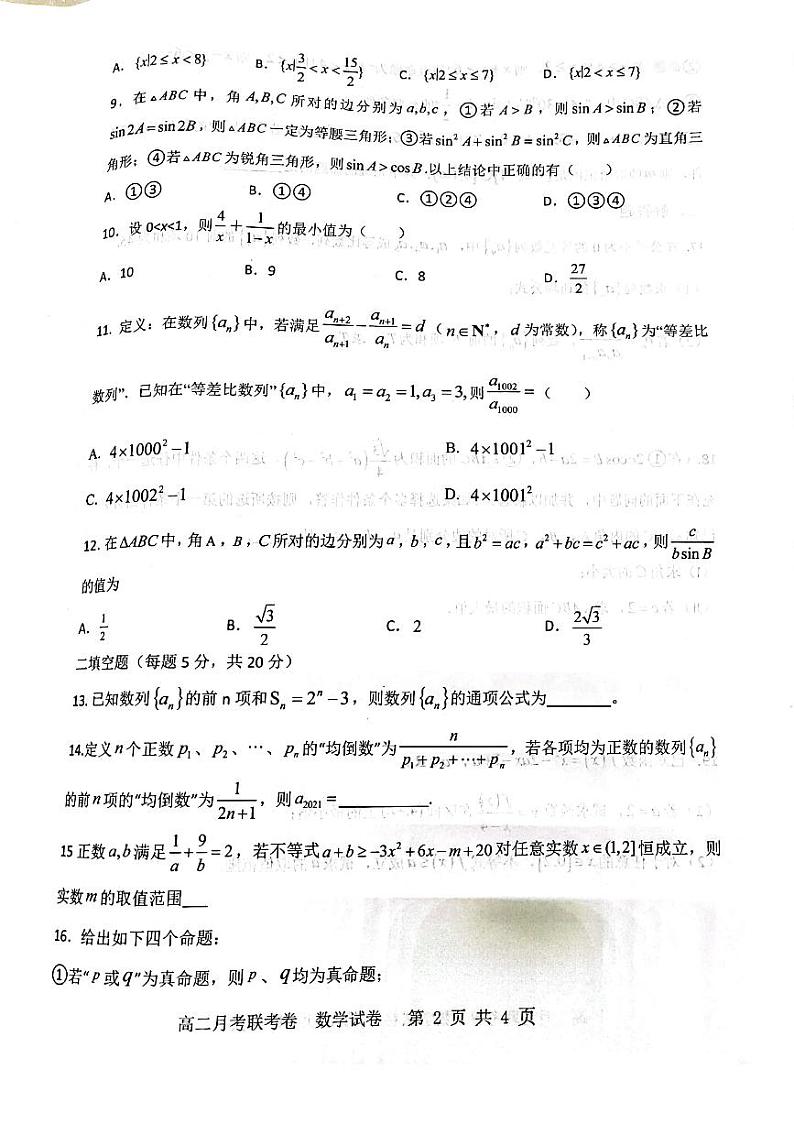 A. {x|2≤x<8} B. {x|3/2<x<15/2} C. {x|2≤x≤7} D. {x|2<x≤7}
9. 在△ABC 中，角 A,B,C 所对的边分别为 a,b,c，①若 A>B，则 sin A>sin B；②若
sin2A=sin2B，则△ABC 一定为等腰三角形；③若 sin² A+sin² B=sin² C，则△ABC 为直角三
角形；④若△ABC 为锐角三角形，则 sin A>cos B.以上结论中正确的有（ ）
A. ①③ B. ①④ C. ①②④ D. ①③④
10. 设 0<x<1，则 4/x + 1/(1-x) 的最小值为（ ）
A. 10 B. 9 C. 8 D. 27/2
11. 定义：在数列{aₙ}中，若满足 aₙ₊₂/aₙ₊₁ − aₙ₊₁/aₙ = d（n∈N*，d 为常数），称{aₙ}为“等差比
数列”. 已知在“等差比数列”{aₙ}中，a₁=a₂=1,a₃=3,则 a₁₀₀₂/a₁₀₀₀ =（ ）
A. 4×1000²−1 B. 4×1001²−1
C. 4×1002²−1 D. 4×1001²
12. 在ΔABC中，角A，B，C所对的边分别为a，b，c，且b²=ac，a²+bc=c²+ac，则 c/(b sin B)
的值为
A. 1/2 B. √3/2 C. 2 D. 2√3/3
二填空题（每题 5 分，共 20 分）
13. 已知数列{aₙ}的前 n 项和Sₙ=2ⁿ−3，则数列{aₙ}的通项公式为______。
14.定义n个正数 p₁、p₂、…、pₙ的“均倒数”为 n/(p₁+p₂+…+pₙ)，若各项均为正数的数列{aₙ}
的前n项的“均倒数”为 1/(2n+1)，则 a₂₀₂₁=________.
15 正数 a,b 满足 1/a + 9/b = 2，若不等式 a+b≥−3x²+6x−m+20 对任意实数 x∈(1,2] 恒成立，则
实数 m 的取值范围___
16. 给出如下四个命题：
①若“p 或 q”为真命题，则 p、q 均为真命题；
高二月考联考卷 数学试卷 第 2 页 共 4 页